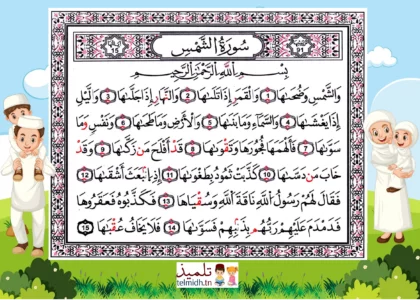 سُورَةُ الشَّمْسِ
بِسْمِ اللَّهِ الرَّحْمَٰنِ الرَّحِيمِ
وَالشَّمْسِ وَضُحَىٰهَا 1 وَالْقَمَرِ إِذَا تَلَىٰهَا 2 وَالنَّهَارِ إِذَا جَلَّىٰهَا 3 وَالَّيْلِ
إِذَا يَغْشَىٰهَا 4 وَالسَّمَآءِ وَمَا بَنَىٰهَا 5 وَالْأَرْضِ وَمَا طَحَىٰهَا 6 وَنَفْسٍ وَمَا
سَوَّىٰهَا 7 فَأَلْهَمَهَا فُجُورَهَا وَتَقْوَىٰهَا 8 قَدْ أَفْلَحَ مَن زَكَّىٰهَا 9 وَقَدْ
خَابَ مَن دَسَّىٰهَا 10 كَذَّبَتْ ثَمُودُ بِطَغْوَىٰهَا 11 إِذِ انۢبَعَثَ أَشْقَىٰهَا 12
فَقَالَ لَهُمْ رَسُولُ اللَّهِ نَاقَةَ اللَّهِ وَسُقْيَٰهَا 13 فَكَذَّبُوهُ فَعَقَرُوهَا
فَدَمْدَمَ عَلَيْهِمْ رَبُّهُم بِذَنۢبِهِمْ فَسَوَّىٰهَا 14 فَلَا يَخَافُ عُقْبَٰهَا 15
تلميذ
telmidh.tn